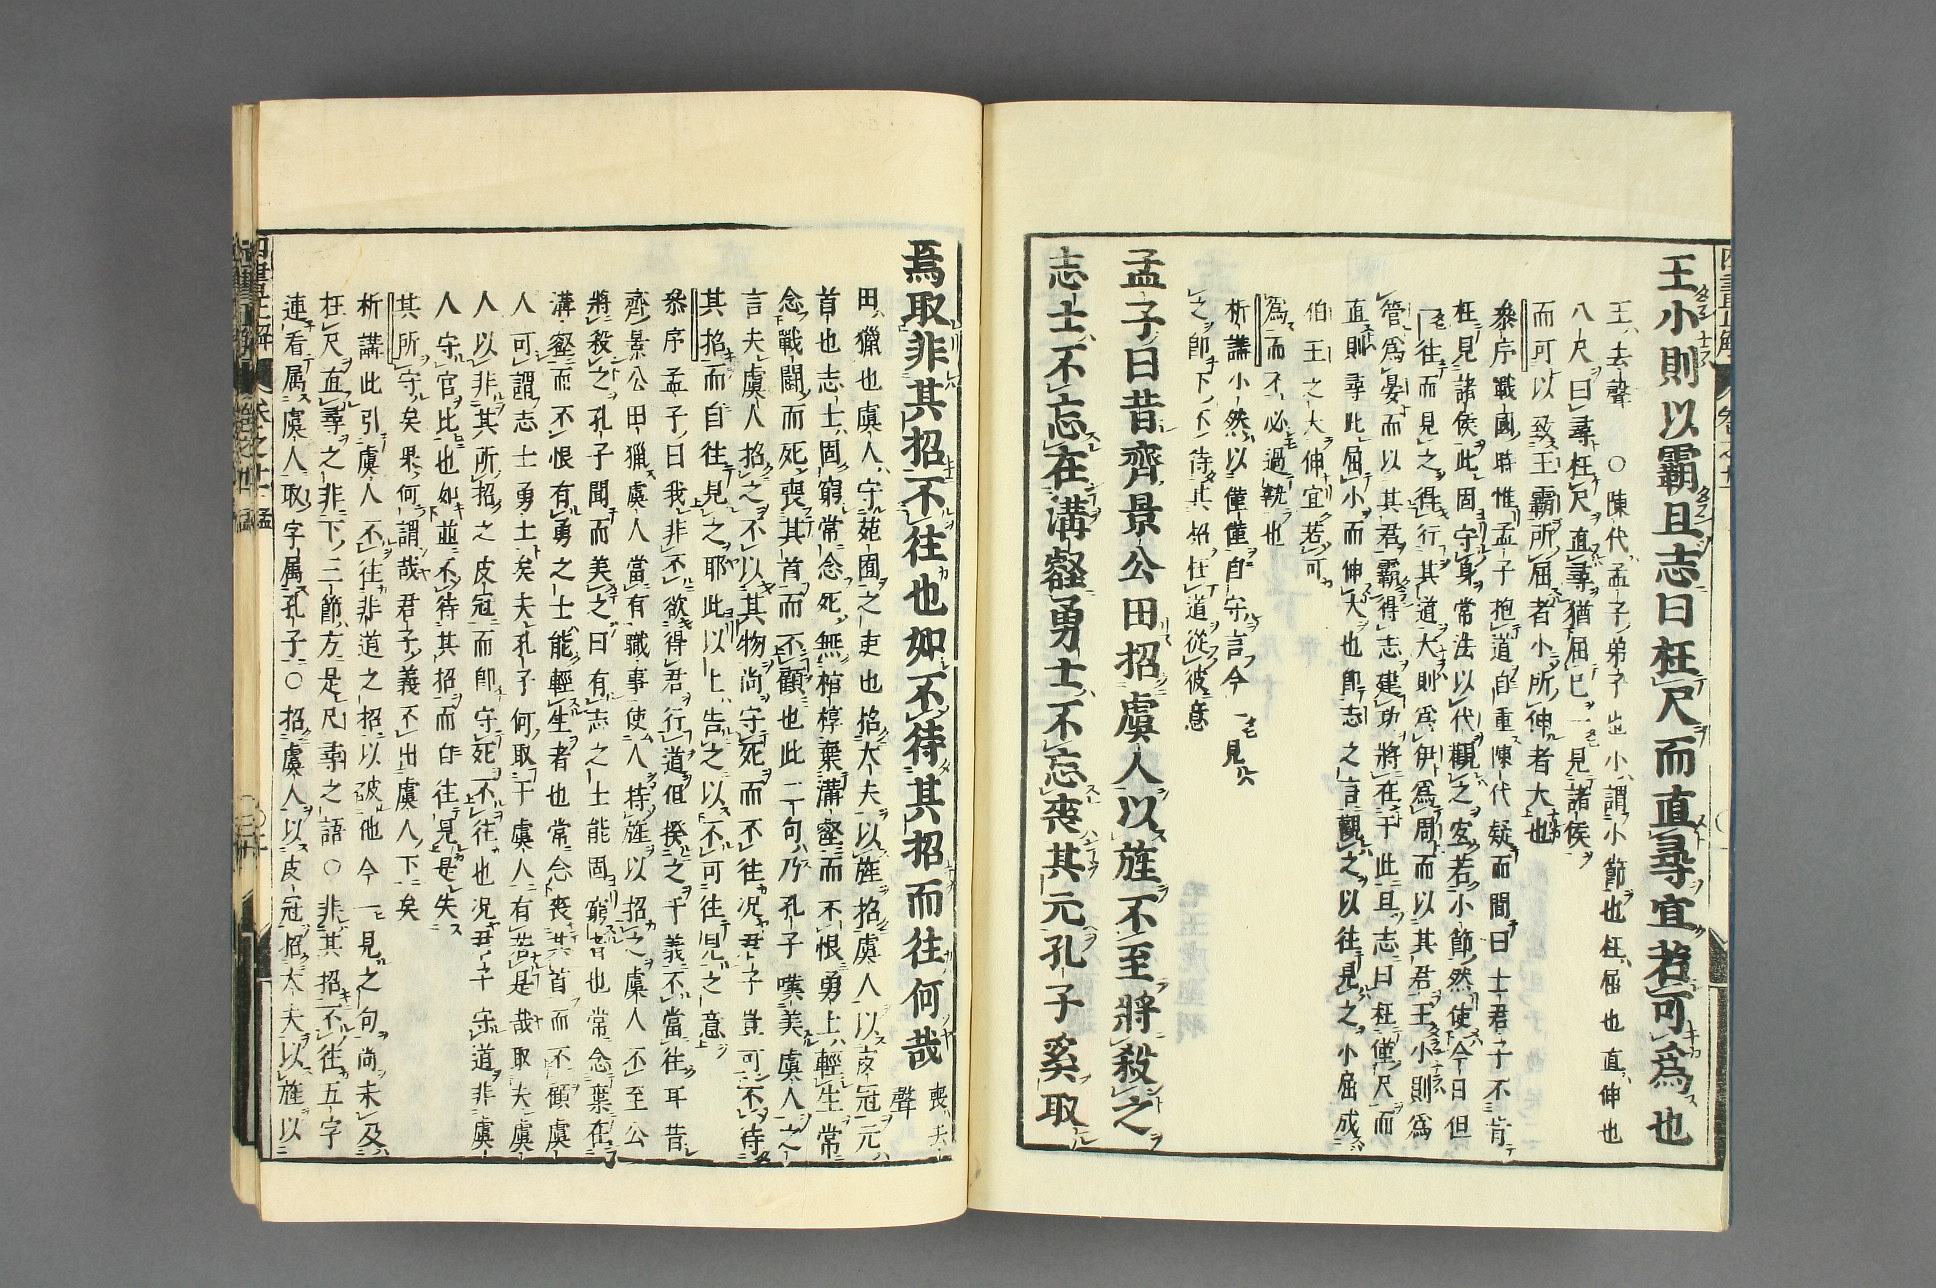 王小則以霸且志曰枉尺而直尋宜若可爲也
王去聲○陳代孟子弟子也小謂小節也枉屈也直伸也
八尺曰尋枉尺直尋猶屈己一見諸侯
而可以致王霸所屈者小所伸者大也
叅序戰國時惟孟子抱道自重陳代疑而間曰士君子不肯
枉見諸侯此固守身常法以代觀之安若小節然使今日但
一往而見之得行其道大則爲伊爲周而以其君王小則爲
管爲晏而以其君霸得志建功將在于此且志曰枉僅尺而
直則尋此屈小而伸大也即志之言觀之以往見之小屈成
伯王之大伸宜若可
爲而不必過執也
析講小然以僅僅自守言今一見六
之即下不待其招枉道從彼意
孟子曰昔齊景公田招虞人以旌不至將殺之
志士不忘在溝壑勇士不忘喪其元孔子奚取
焉取非其招不往也如不待其招而往何哉 喪去聲
田獵也虞人守苑囿之吏也招大夫以旌招虞人以皮冠元
首也志士固窮常念死無棺椁棄溝壑而不恨勇士輕生常
念戰鬪而死喪其首而不顧也此二句乃孔子嘆美虞人之
言夫虞人招之不以其物尚守死而不往況君子豈可不待
其招而自往見之耶此以上告之以不可往見之意
叅序孟子曰我非不欲得君行道但揆之于義不當往耳昔
齊景公田獵虞人當有職事使人持旌以招之虞人不至公
將殺之孔子聞而美之曰有志之士能固窮者也常念棄在
溝壑而不恨有勇之士能輕生者也常念喪其首而不顧虞
人可謂志士勇士矣夫孔子何取于虞人有若是哉取夫虞
人以非其所招之皮冠而即守死不往也況君子守道非虞
人守官比也如並不待其招而自往見是失
其所守矣果何謂哉君子義不出虞人下矣
析講此引虞人不往非道之招以破他今一見之句尚未及
枉尺直尋之非下三節方是尺尋之語○非其招不往五字
連看属虞人取字属孔子○招虞人以皮冠招大夫以旌以